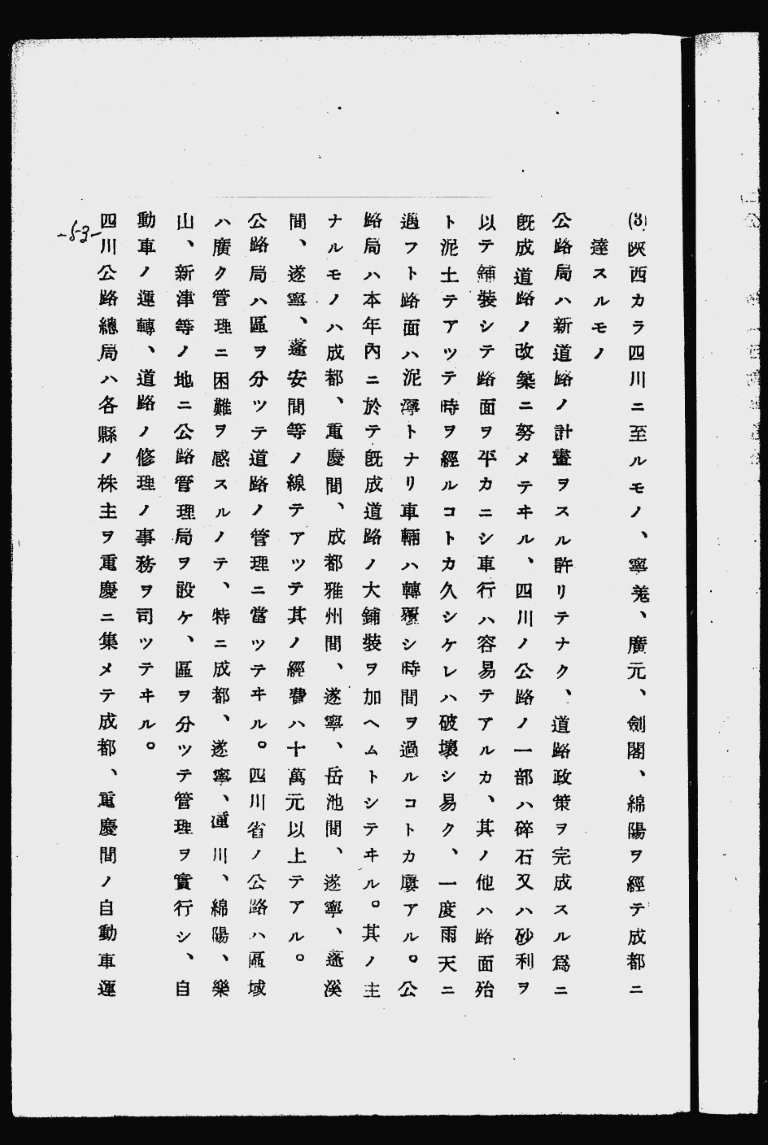 (3)陝西カラ四川ニ至ルモノ、寧羗、廣元、劍閣、綿陽ヲ經テ成都ニ
達スルモノ
公路局ハ新道路ノ計畫ヲスル許リテナク、道路政策ヲ完成スル爲ニ
旣成道路ノ改築ニ努メテヰル、四川ノ公路ノ一部ハ碎石又ハ砂利ヲ
以テ鋪裝シテ路面ヲ平カニシ車行ハ容易テアルカ、其ノ他ハ路面殆
ト泥土テアツテ時ヲ經ルコトカ久シケレハ破壞シ易ク、一度雨天ニ
遇フト路面ハ泥濘トナリ車輛ハ轉覆シ時間ヲ過ルコトカ屢アル。公
路局ハ本年內ニ於テ旣成道路ノ大鋪裝ヲ加ヘムトシテヰル。其ノ主
ナルモノハ成都、重慶間、成都雅州間、遂寧、岳池間、遂寧、蓬溪
間、遂寧、蓬安間等ノ線テアツテ其ノ經費ハ十萬元以上テアル。
公路局ハ區ヲ分ツテ道路ノ管理ニ當ツテヰル。四川省ノ公路ハ區域
ハ廣ク管理ニ困難ヲ感スルノテ、特ニ成都、遂寧、運川、綿陽、樂
山、新津等ノ地ニ公路管理局ヲ設ケ、區ヲ分ツテ管理ヲ實行シ、自
動車ノ運轉、道路ノ修理ノ事務ヲ司ツテヰル。
四川公路總局ハ各縣ノ株主ヲ重慶ニ集メテ成都、重慶間ノ自動車運
-53-